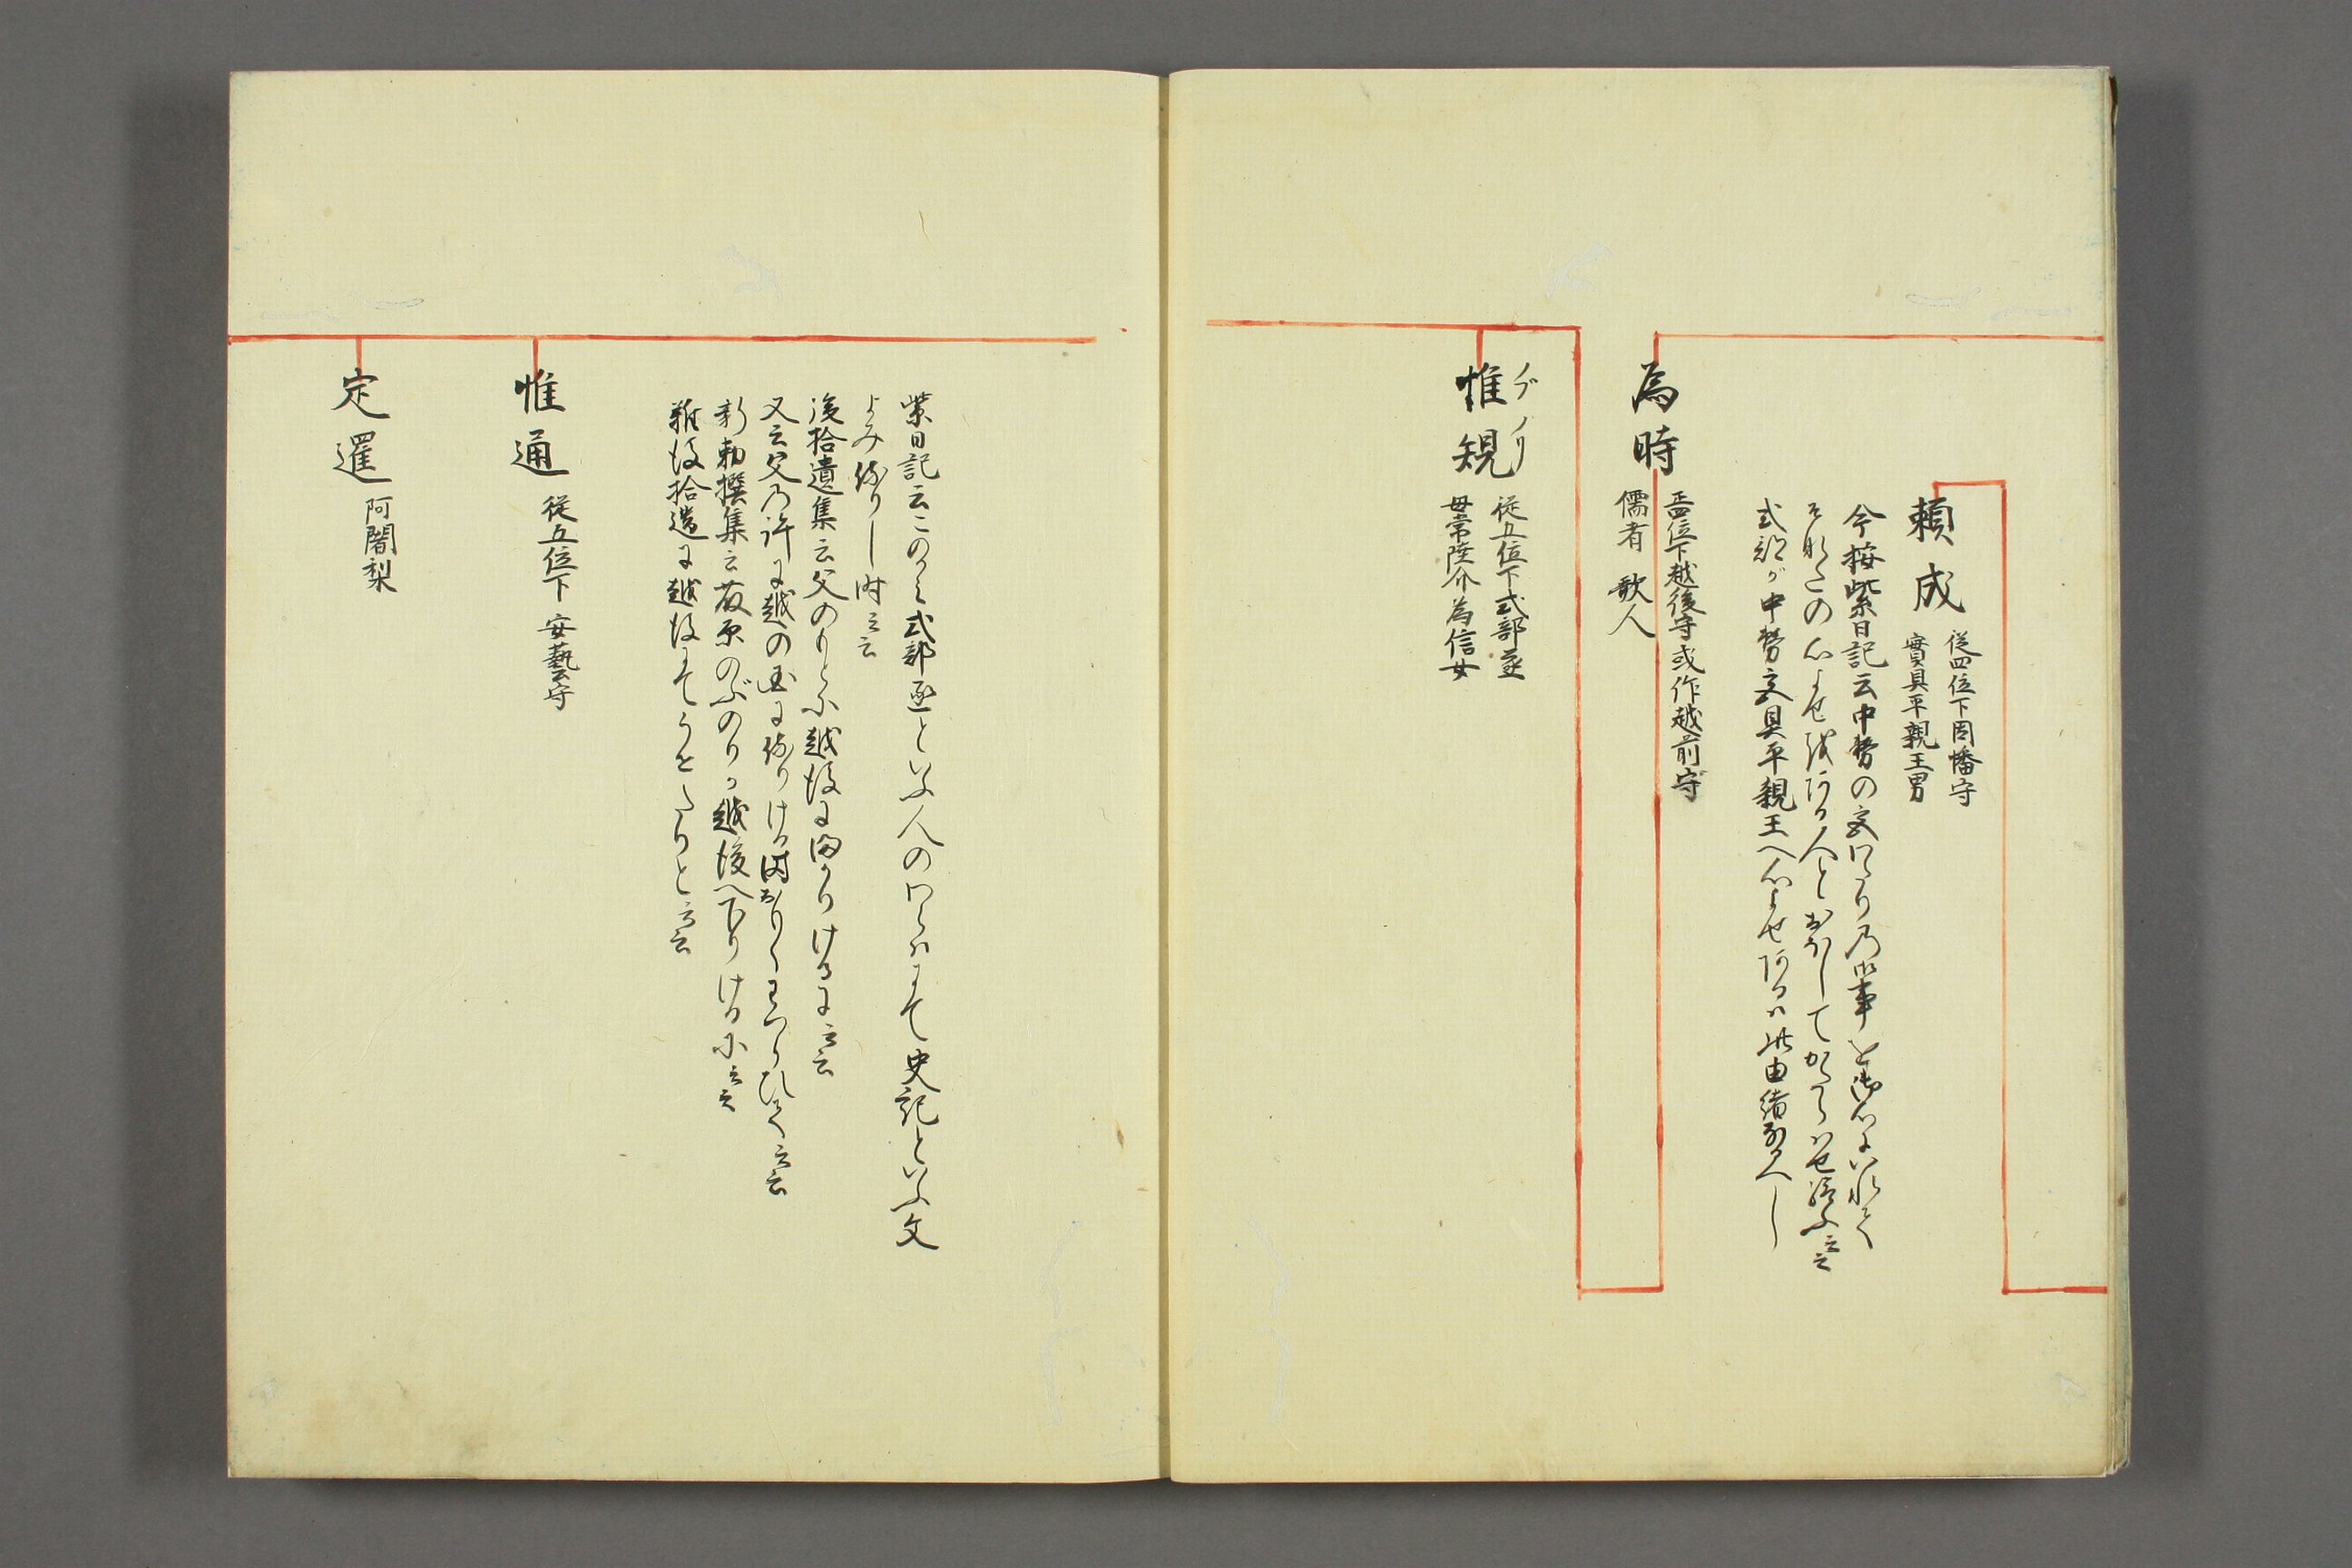 頼成
従四位下因幡守
實具平親王男
今按紫日記云中務の宮わたりの御事を御心にいれて
そなたの心よせ有ける人とおほしてかたらはせ給ふ云云
式部が中務宮具平親王へ心よせ有るは此由緒なるへし
為時
正四位下越後守或作越前守
儒者 歌人
惟規
ノブノリ
従五位下式部丞
母常陸介為信女
紫日記云このかみ式部丞といふ人のわらはにて史記といふ文
よみ侍りし時云云
後拾遺集云父のもとに越後にまかりけるに云云
又云父の許に越の国に侍りける時おもくわつらひて云云
新勅撰集云藤原のぶのりか越後へ下りけるに云云
難後拾遺に越後にてうせたりと云云
惟通
従五位下 安藝守
定暹
阿闍梨